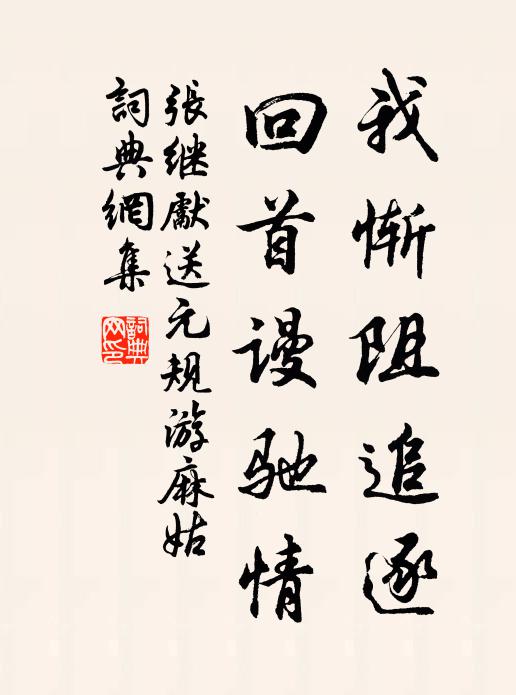 我惭阻追逐
回首谩驰情
張继獻送元規游麻姑
詞典網集
詞典网印